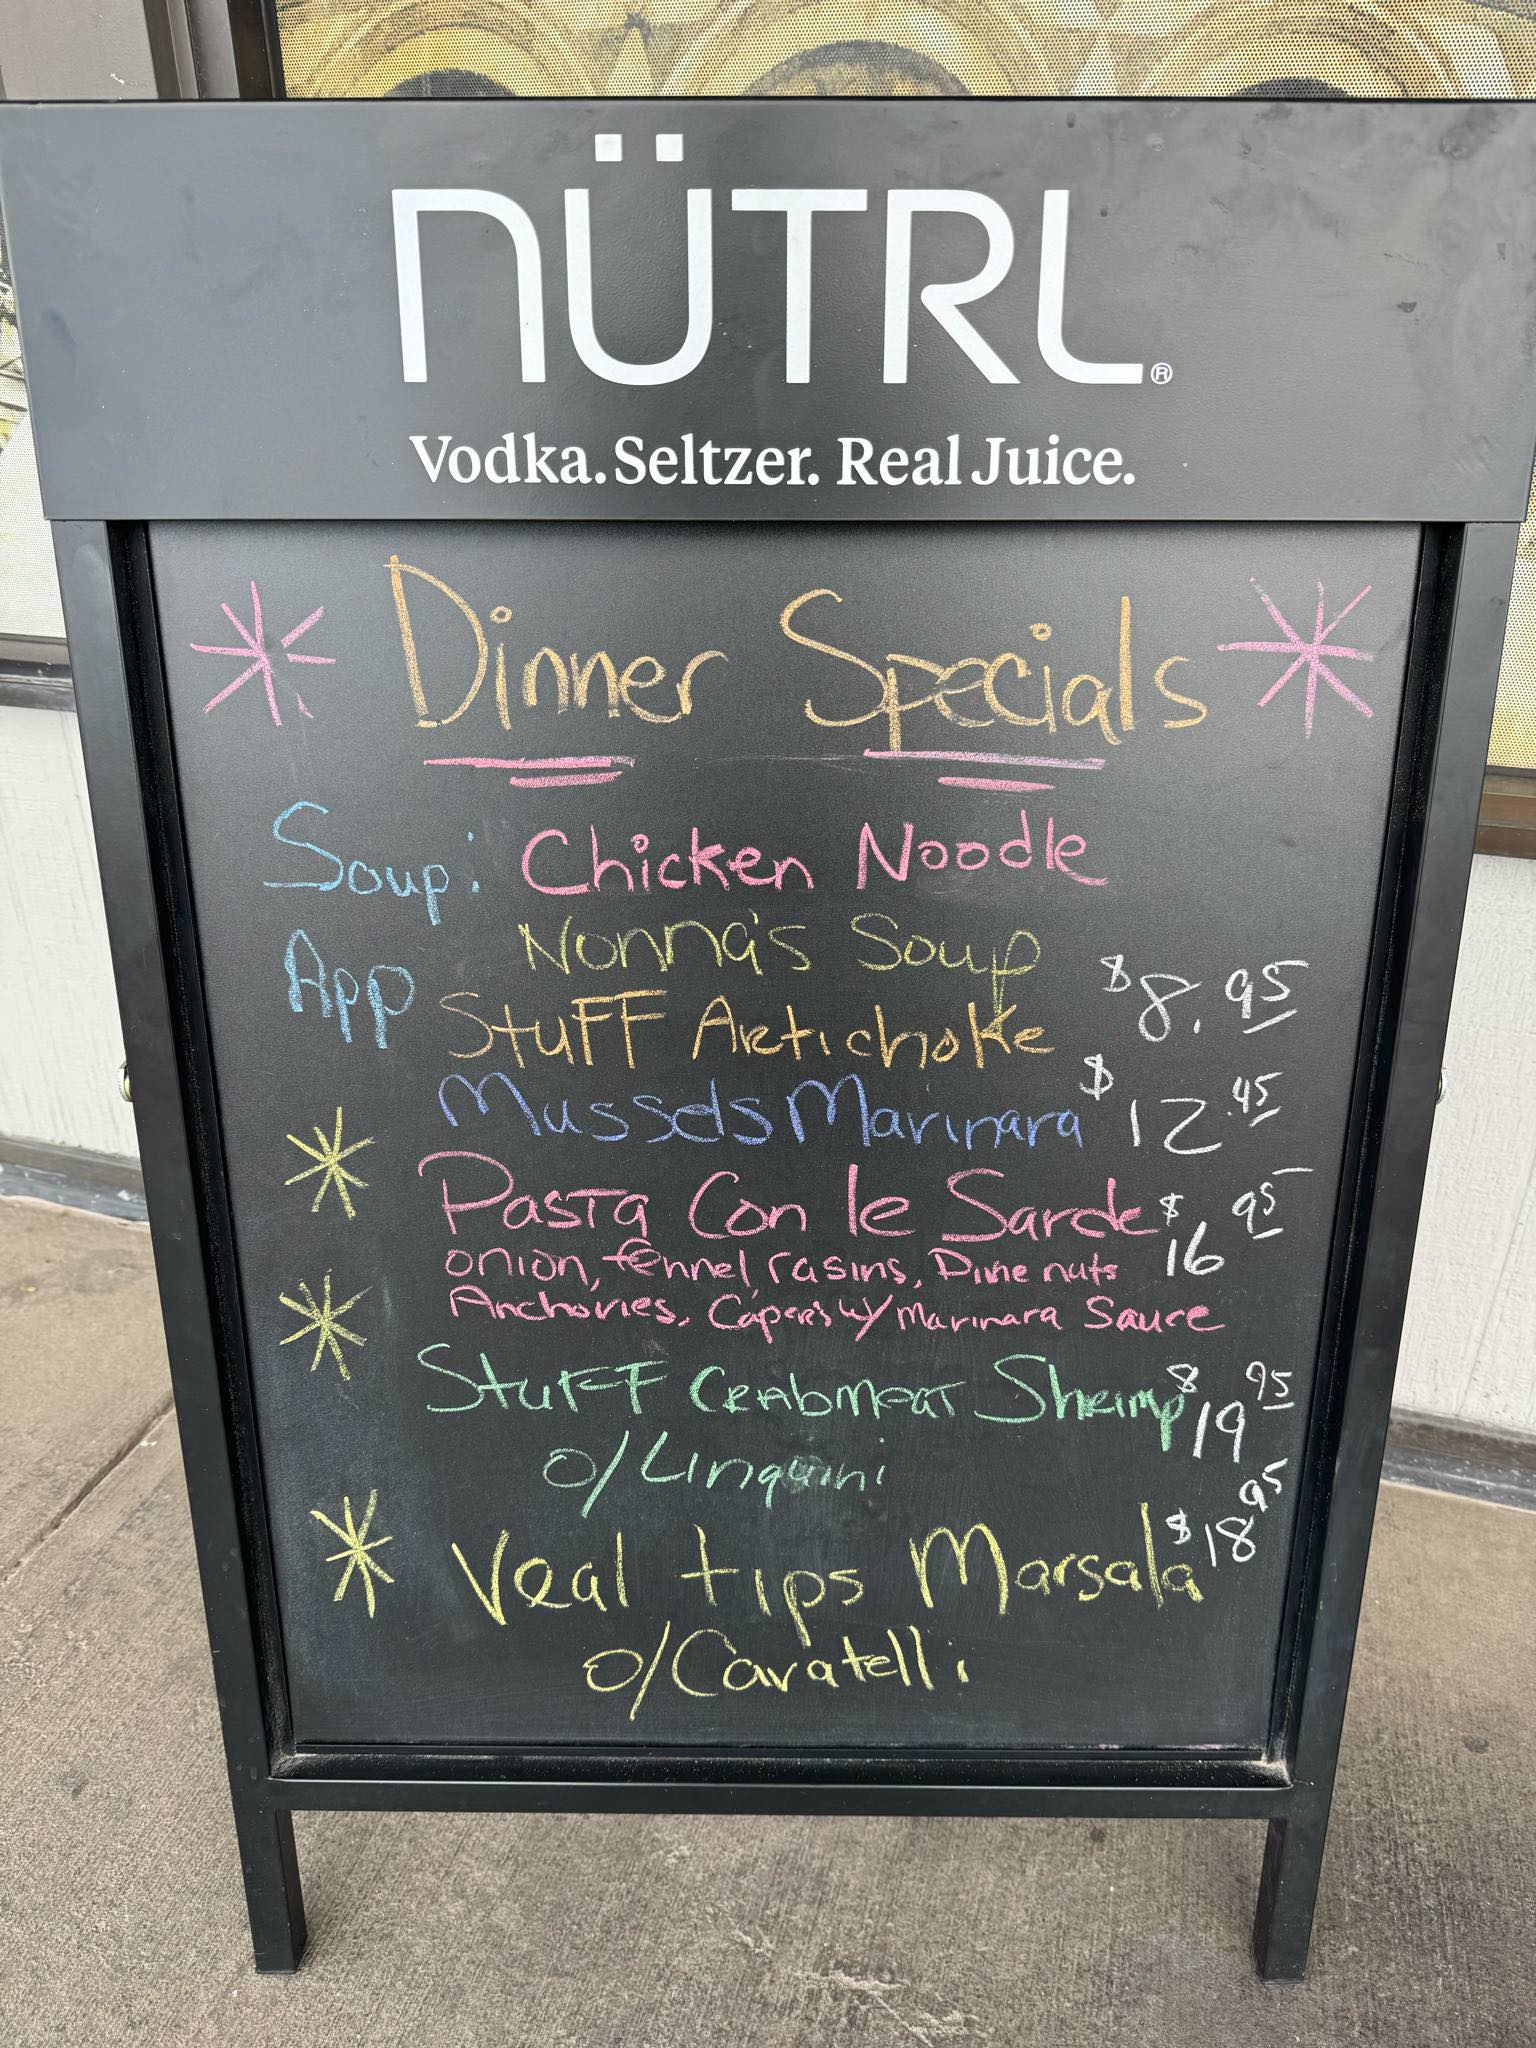 NÜTRL®
Vodka. Seltzer. Real Juice.
Dinner Specials
Soup: Chicken Noodle
Nonna's Soup
App Stuff Artichoke $8.95
Mussels Marinara $12.45
Pasta Con le Sarde $16.95
onion, fennel rasins, Pine nuts
Anchovies, Caper's w/ Marinara Sauce
Stuff Crabmeat Shrimp $19.95
o/Linguini
Veal tips Marsala $18.95
o/Cavatelli